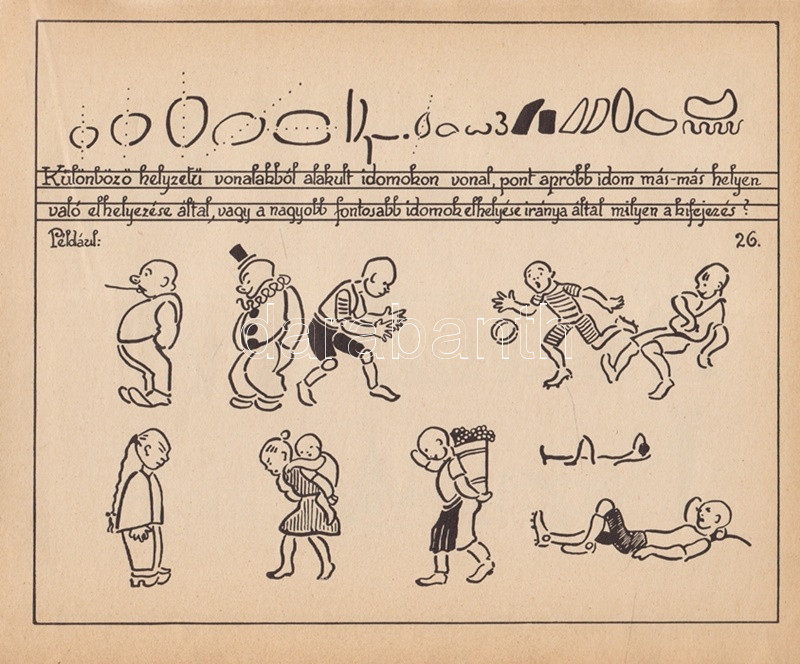 Különböző helyzetű vonalakból alakult idomokon vonal, pont apróbb idom más-más helyen
való elhelyezése által, vagy a nagyobb fontosabb idomok elhelyése iránya által milyen a kifejezés?
Például:
26.
darabanth